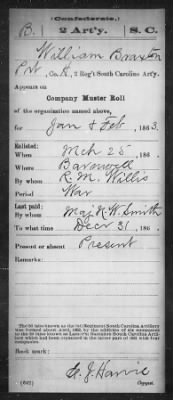 (Confederate.)
B. 2 Art'y. S. C.
William Braxton
Pvt, Co. K, 2 Reg't South Carolina Art'y.
Appears on
Company Muster Roll
of the organization named above,
for Jan & Feb, 1863.
Enlisted:
When Mch 25, 186 .
Where Barnwell
By whom R. M. Willis
Period War
Last paid:
By whom Maj. R. W. Smith
To what time Decr 31, 186 .
Present or absent Present
Book mark:
(642) Copyist.